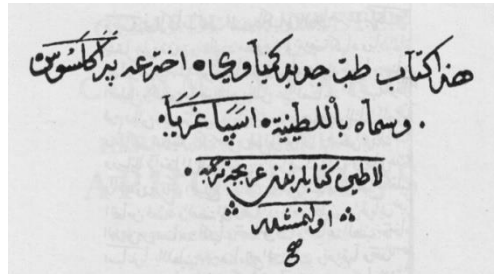 هذا كتاب طب جديد كيمياوي • اخترعه براكلسوس
• وسماه باللطينية • اسپاغريا •
لاطين كتابلرندن عربجه ترجمه •
اولنمشدر